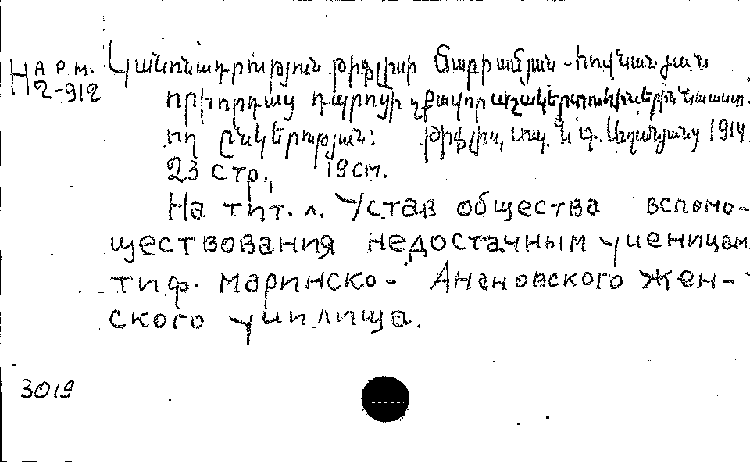 Н А Р М. Կանոնադրություն թիֆլիսի Մարիամյան - Հովնանյան
2-912 օրիորդաց դպրոցի չքավոր աշակերտուհիներին նպաստ.
ող ընկերության: Թիֆլիս, տպ. Ն. Գ. Աղանյանց 1914
23 стр., 19 см.
На тит. л. Устав общества вспомо-
ществования недостачным ученицам
тиф. Маринско - Анановского жен-
ского училища.
3019